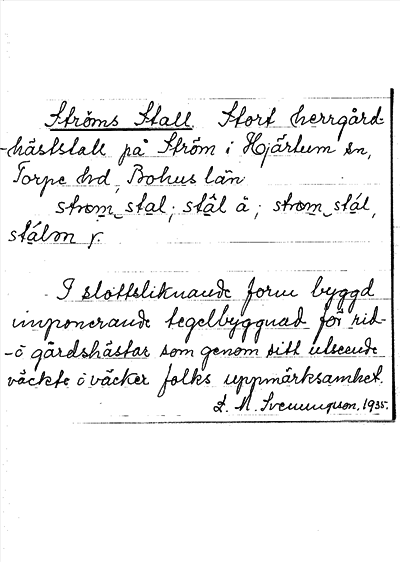 Ströms Stall. Stort herrgård-
-häststall på Ström i Hjärtum sn,
Torpe hd, Bohus län
strom_stal; stål ä; strom_stál,
stálon r.
I slottsliknande form byggd
imponerande tegelbyggnad för rid-
-o gårdshästar som genom sitt utseende
väckte o väcker folks uppmärksamhet.
L. M. Svenungsson. 1935.